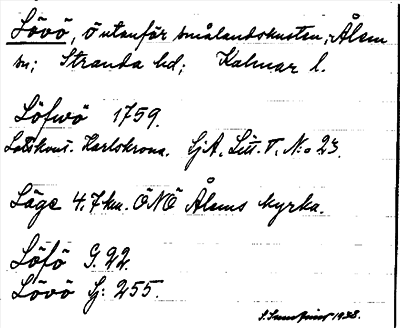 Lövö, ö utanför smålandskusten, Ålem
sn; Stranda hd; Kalmar l.
Löfwö 1759.
Lotskont. Karlskrona. SjA, Litt. T, N:o 23.
Läge 4,7 km. ÖNÖ Ålems kyrka.
Löfö G. 22.
Lövö Sj: 255.
1938.